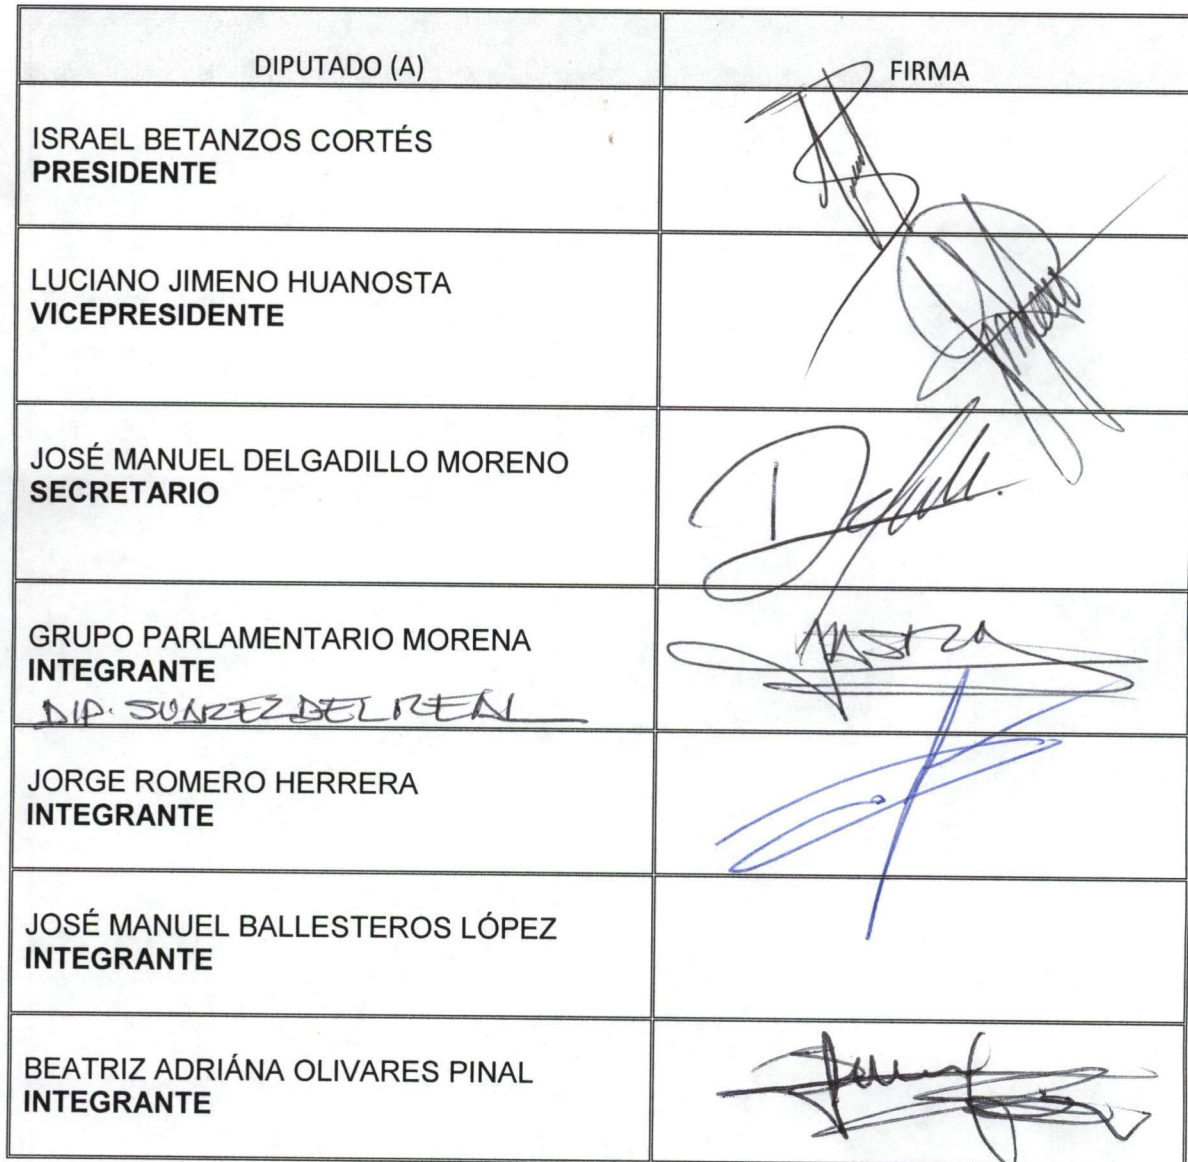 DIPUTADO (A)
FIRMA
ISRAEL BETANZOS CORTÉS
PRESIDENTE
LUCIANO JIMENO HUANOSTA
VICEPRESIDENTE
JOSÉ MANUEL DELGADILLO MORENO
SECRETARIO
GRUPO PARLAMENTARIO MORENA
INTEGRANTE
DIP. SUAREZ DEL REAL
JORGE ROMERO HERRERA
INTEGRANTE
JOSÉ MANUEL BALLESTEROS LÓPEZ
INTEGRANTE
BEATRIZ ADRIÁNA OLIVARES PINAL
INTEGRANTE